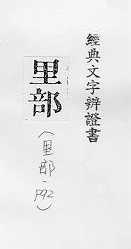 經典文字辨證書
里部
(里部-P92)